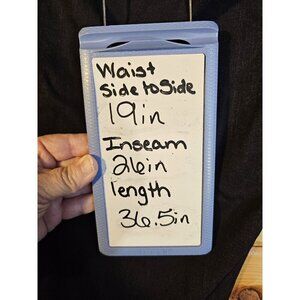 Waist
side to side
19in
Inseam
26in
length
36.5in